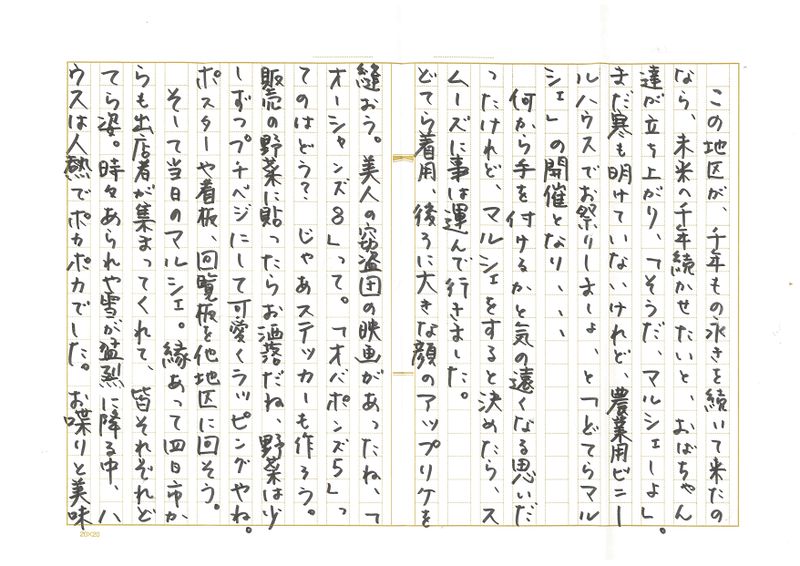 この地区が、千年もの永きを続いて来たの
なら、未来へ千年続かせたいと、おばちゃん
達が立ち上がり、「そうだ、マルシェしよ」。
まだ寒も明けていないけれど、農業用ビニー
ルハウスでお祭りしましょ、と「どてらマル
シェ」の開催となり、、、
何から手を付けるかと気の遠くなる思いだ
ったけれど、マルシェをすると決めたら、ス
ムーズに事は運んで行きました。
どてら着用、後ろに大きな顔のアップリケを
縫おう。美人の窃盗団の映画があったね、「
オーシャンズ8」って。「オバポンズ5」っ
てのはどう？じゃあステッカーも作ろう。
販売の野菜に貼ったらお洒落だね、野菜は少
しずつプチベジにして可愛くラッピングやね。
ポスターや看板、回覧板を他地区に回そう。
そして当日のマルシェ。縁あって四日市か
らも出店者が集まってくれて、皆それぞれど
てら姿。時々あられや雪が猛烈に降る中、ハ
ウスは人熱でポカポカでした。お喋りと美味
20×20